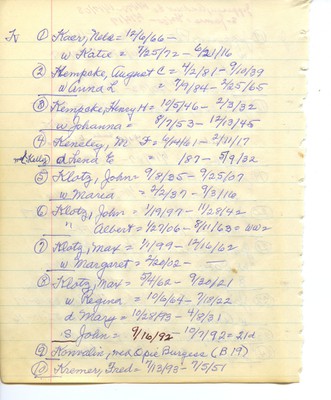 K ① Kaer, Nels = 12/6/66 –
w Katie = 7/25/72 – 6/21/16
② Kempcke, August C = 4/2/81 – 9/10/39
w Anna L = 7/9/84 – 7/25/65
③ Kempcke, Henry H = 10/5/46 – 2/3/32
w Johanna = 8/7/53 – 12/13/45
④ Keneley, M. F = 4/14/61 – 2/11/17
d Lena E = /87 – 5/9/32
⑤ Klotz, John = 9/8/35 – 9/25/07
w Maria = 2/2/37 – 9/3/16
⑥ Klotz, John = 1/19/97 – 11/28/42
" Albert = 1/27/06 – 8/11/63 = WW2
⑦ Klotz, Max = 1/1/99 – 12/16/62
w Margaret = 2/20/02 – —
⑧ Klotz, Max = 5/4/62 – 9/20/21
w Regina = 10/6/64 – 7/18/22
d Mary = 10/28/93 – 4/8/31
s John = 9/16/92 – 10/7/92 = 21d
⑨ Konvalin, Opie Burgess (B 19)
⑩ Kremer, Fred = 7/13/93 – 7/5/51